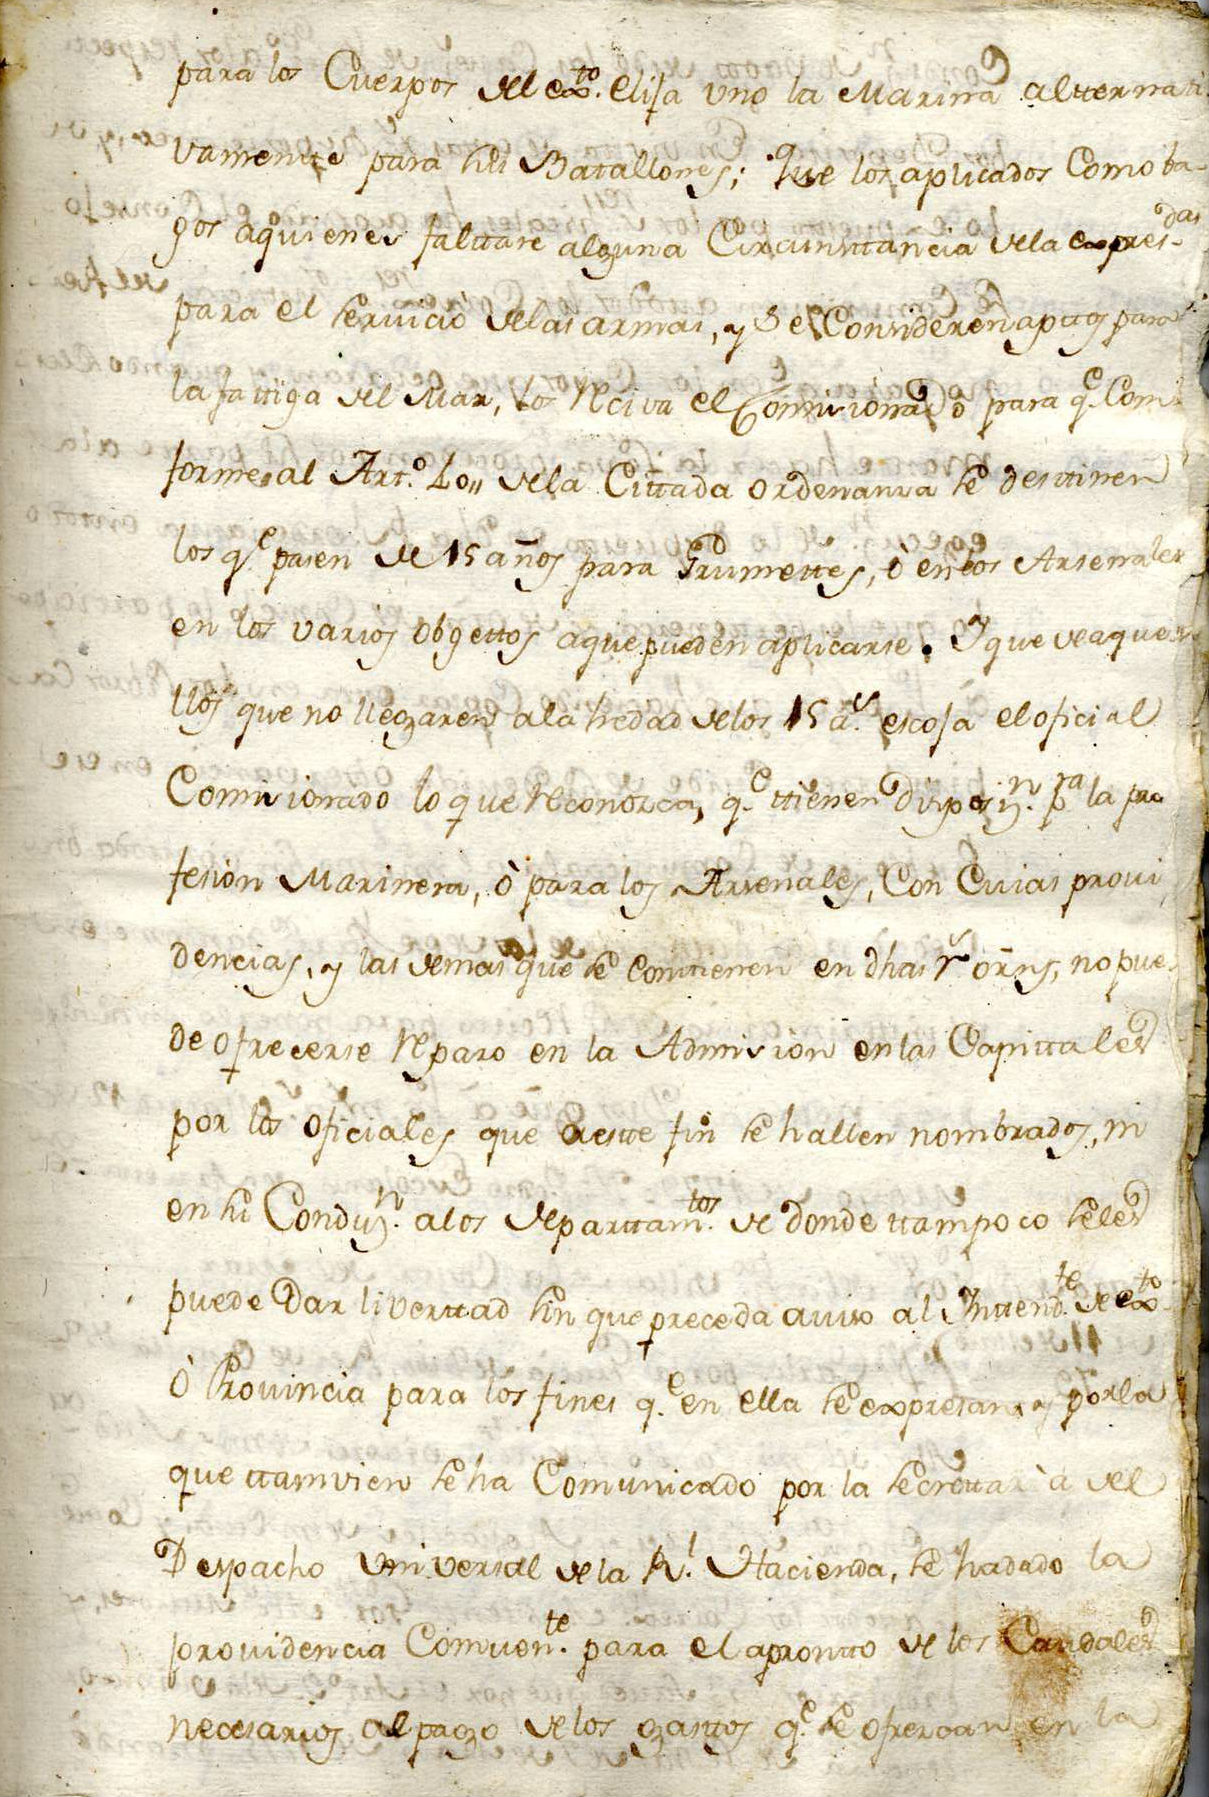 para los Cuerpos del exto. elija uno la Marina alternati
vamentte para sus Batallones; Que los aplicados Como ba-
gos aquienes falttare alguna Circunsttancia dela expres-das
para el servicio delas armas, y se Consideren apttos para
la fattiga del Mar, los reciva el Comisionado para qe. Com
forme al Artº. 40,, dela Cittada ordenanza se desttinen
los qe. pasen de 15 años para Grumettes, ò en los Arsenales
en los varios obgettos aque pueden aplicarse. Y que de aque
llos que no llegaren ala hedad delos 15 as. escoja el oficial
Comisionado lo que reconozca, qe. ttienen disposin. pa. la pro
fesion Marinera, ò para los Arsenales, Con Cuias provi
dencias, y las demas que se conttienen en dhas rs. orns, no pue-
de ofrecerse reparo en la Admision en las Capittales
por los oficiales que a estte fin se hallen nombrados, ni
en su Conduzn. alos departtamtos. de donde ttampoco seles
puede Dar liverttad sin que preceda aviso al Inttendte. de exto.
ò Provincia para los fines qe. en ella se expresan, y por la
que ttamvien se ha Comunicado por la secrettarìa del
Despacho Universal de la Rl. Hacienda, se ha dado la
providencia Comvente. para el apromtto de los Caudales
necesarios al pago de los gasttos qe. se ofrezcan en la